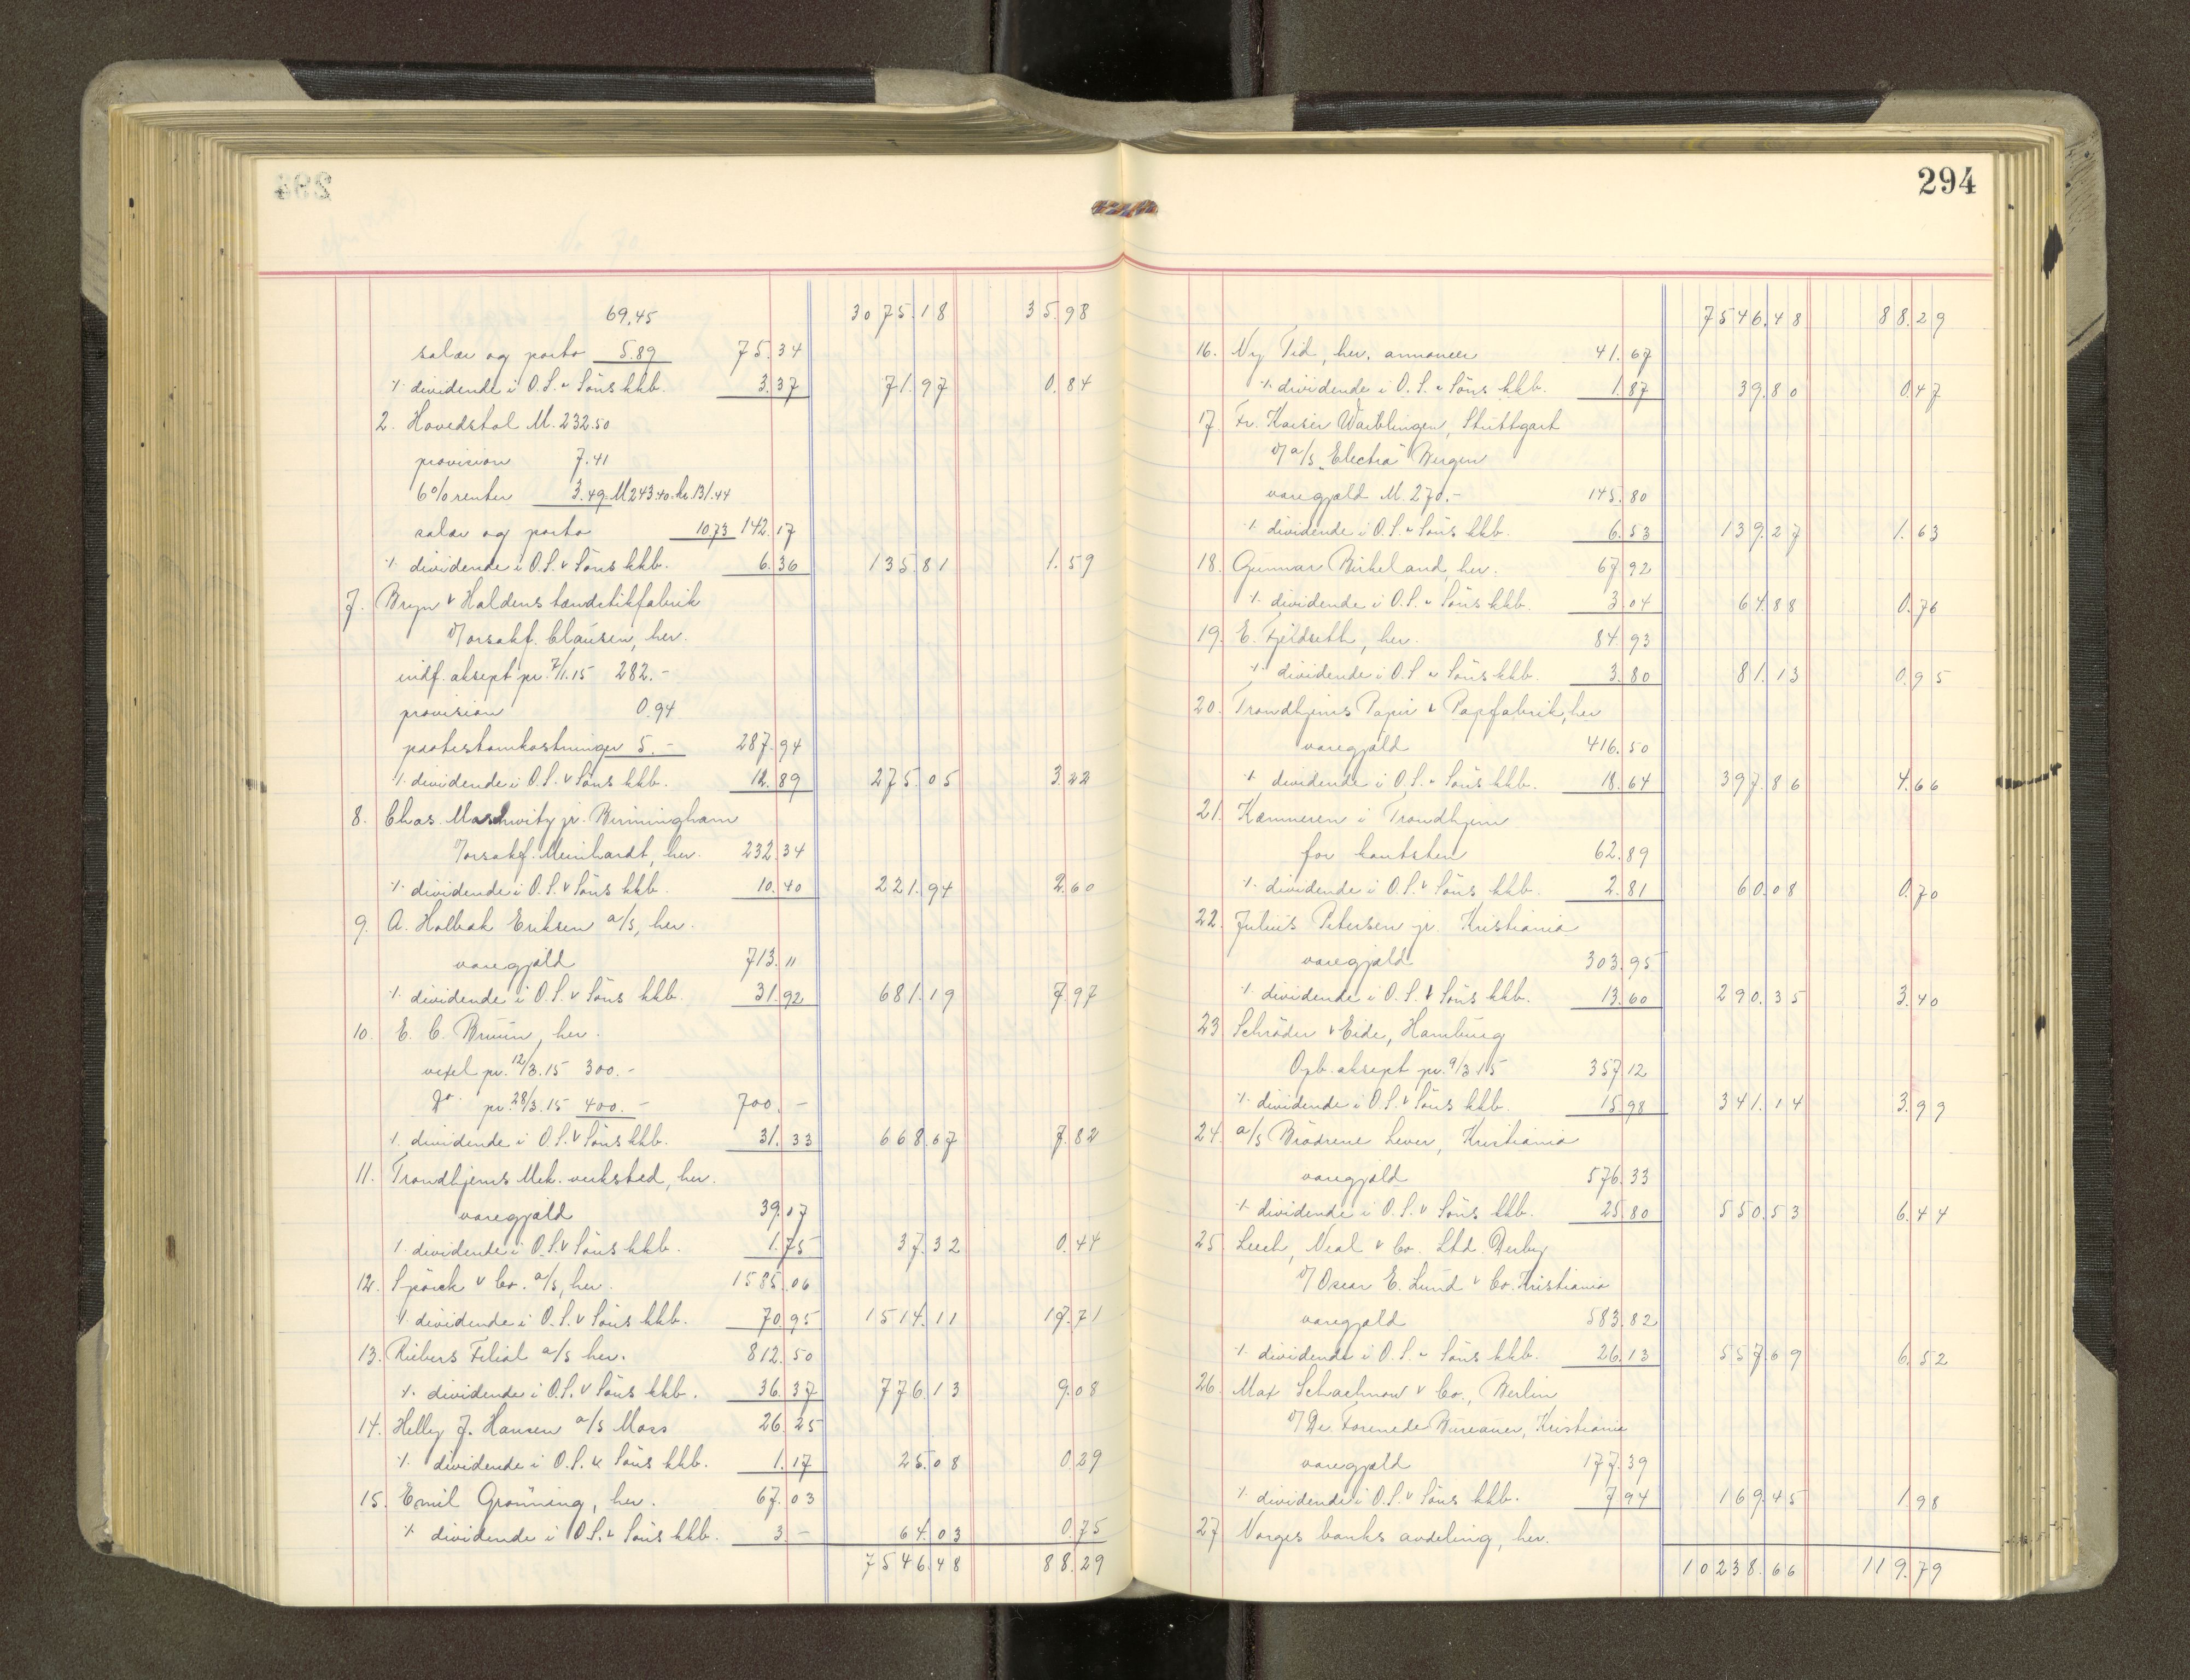 69.45 3075.18 35.98
salær og porto 5.89 75.34
÷ dividende i O.S. & Söns kkb. 3.37 71.97 0.84
2. Hovedstol M. 232.50
provision 7.41
6% renter 3.49 M 243.40 kr. 131.44
salær og porto 10.73 142.17
÷ dividende i O.S. & Söns kkb. 6.36 135.81 1.59
7. Bryn & Haldens tændstikfabrik
v/ orsakf. Clausen, her.
indf. aksept pr. 7/1.15 282.-
provision 0.94
protestomkostninger 5.- 287.94
÷ dividende i O.S. & Söns kkb. 12.89 275.05 3.22
8. Chas. Maschwitz jr. Birmingham
v/ orsakf. Meinhardt, her. 232.34
÷ dividende i O.S. & Söns kkb. 10.40 221.94 2.60
9. A. Holbæk Eriksen a/s, her.
varegjæld 713.11
÷ dividende i O.S. & Söns kkb. 31.92 681.19 7.97
10. E. C. Bruun, her.
vexel pr. 12/3.15 300.-
do. pr. 28/3.15 400.- 700.-
÷ dividende i O.S. & Söns kkb. 31.33 668.67 7.82
11. Trondhjems Mek. verksted, her.
varegjæld 39.07
÷ dividende i O.S. & Söns kkb. 1.75 37.32 0.44
12. Spörck & Co. a/s, her. 1585.06
÷ dividende i O.S. & Söns kkb. 70.95 1514.11 17.71
13. Riebers Filial a/s her. 812.50
÷ dividende i O.S. & Söns kkb. 36.37 776.13 9.08
14. Helly J. Hansen a/s Moss 26.25
÷ dividende i O.S. & Söns kkb. 1.17 25.08 0.29
15. Emil Grönning, her. 67.03
÷ dividende i O.S. & Söns kkb. 3.- 64.03 0.75
7546.48 88.29
294
7546.48 88.29
16. Ny Tid, her, annoncer 41.67
÷ dividende i O.S. & Söns kkb. 1.87 39.80 0.47
17 Fr. Kaiser Waiblingen, Stuttgart
v/ a/s "Electra" Bergen
varegjæld M. 270.- 145.80
÷ dividende i O.S. & Söns kkb. 6.53 139.27 1.63
18. Gunnar Birkeland, her. 67.92
÷ dividende i O.S. & Söns kkb. 3.04 64.88 0.76
19. E. Fjeldseth, her. 84.93
÷ dividende i O.S. & Söns kkb. 3.80 81.13 0.95
20. Trondhjems Papir & Papfabrik, her
varegjæld 416.50
÷ dividende i O.S. & Söns kkb. 18.64 397.86 4.66
21. Kæmneren i Trondhjem
for kantsten 62.89
÷ dividende i O.S. & Söns kkb. 2.81 60.08 0.70
22. Julius Petersen jr. Kristiania
varegjæld 303.95
÷ dividende i O.S. & Söns kkb. 13.60 290.35 3.40
23 Schröder & Eide, Hamburg
Opb. aksept pr. 9/3.15 357.12
÷ dividende i O.S. & Söns kkb. 15.98 341.14 3.99
24. a/s Brödrene Lever, Kristiania
varegjæld 576.33
÷ dividende i O.S. & Söns kkb. 25.80 550.53 6.44
25. Leech, Neal & Co. Ltd. Derby
v/ Oscar E. Lund & Co. Kristiania
varegjæld 583.82
÷ dividende i O.S. & Söns kkb. 26.13 557.69 6.52
26. Max Schachnow & Co., Berlin
v/ De Forenede Bureauer, Kristiania
varegjæld 177.39
÷ dividende i O.S. & Söns kkb. 7.94 169.45 1.98
27 Norges banks avdeling, her.
10238.66 119.79